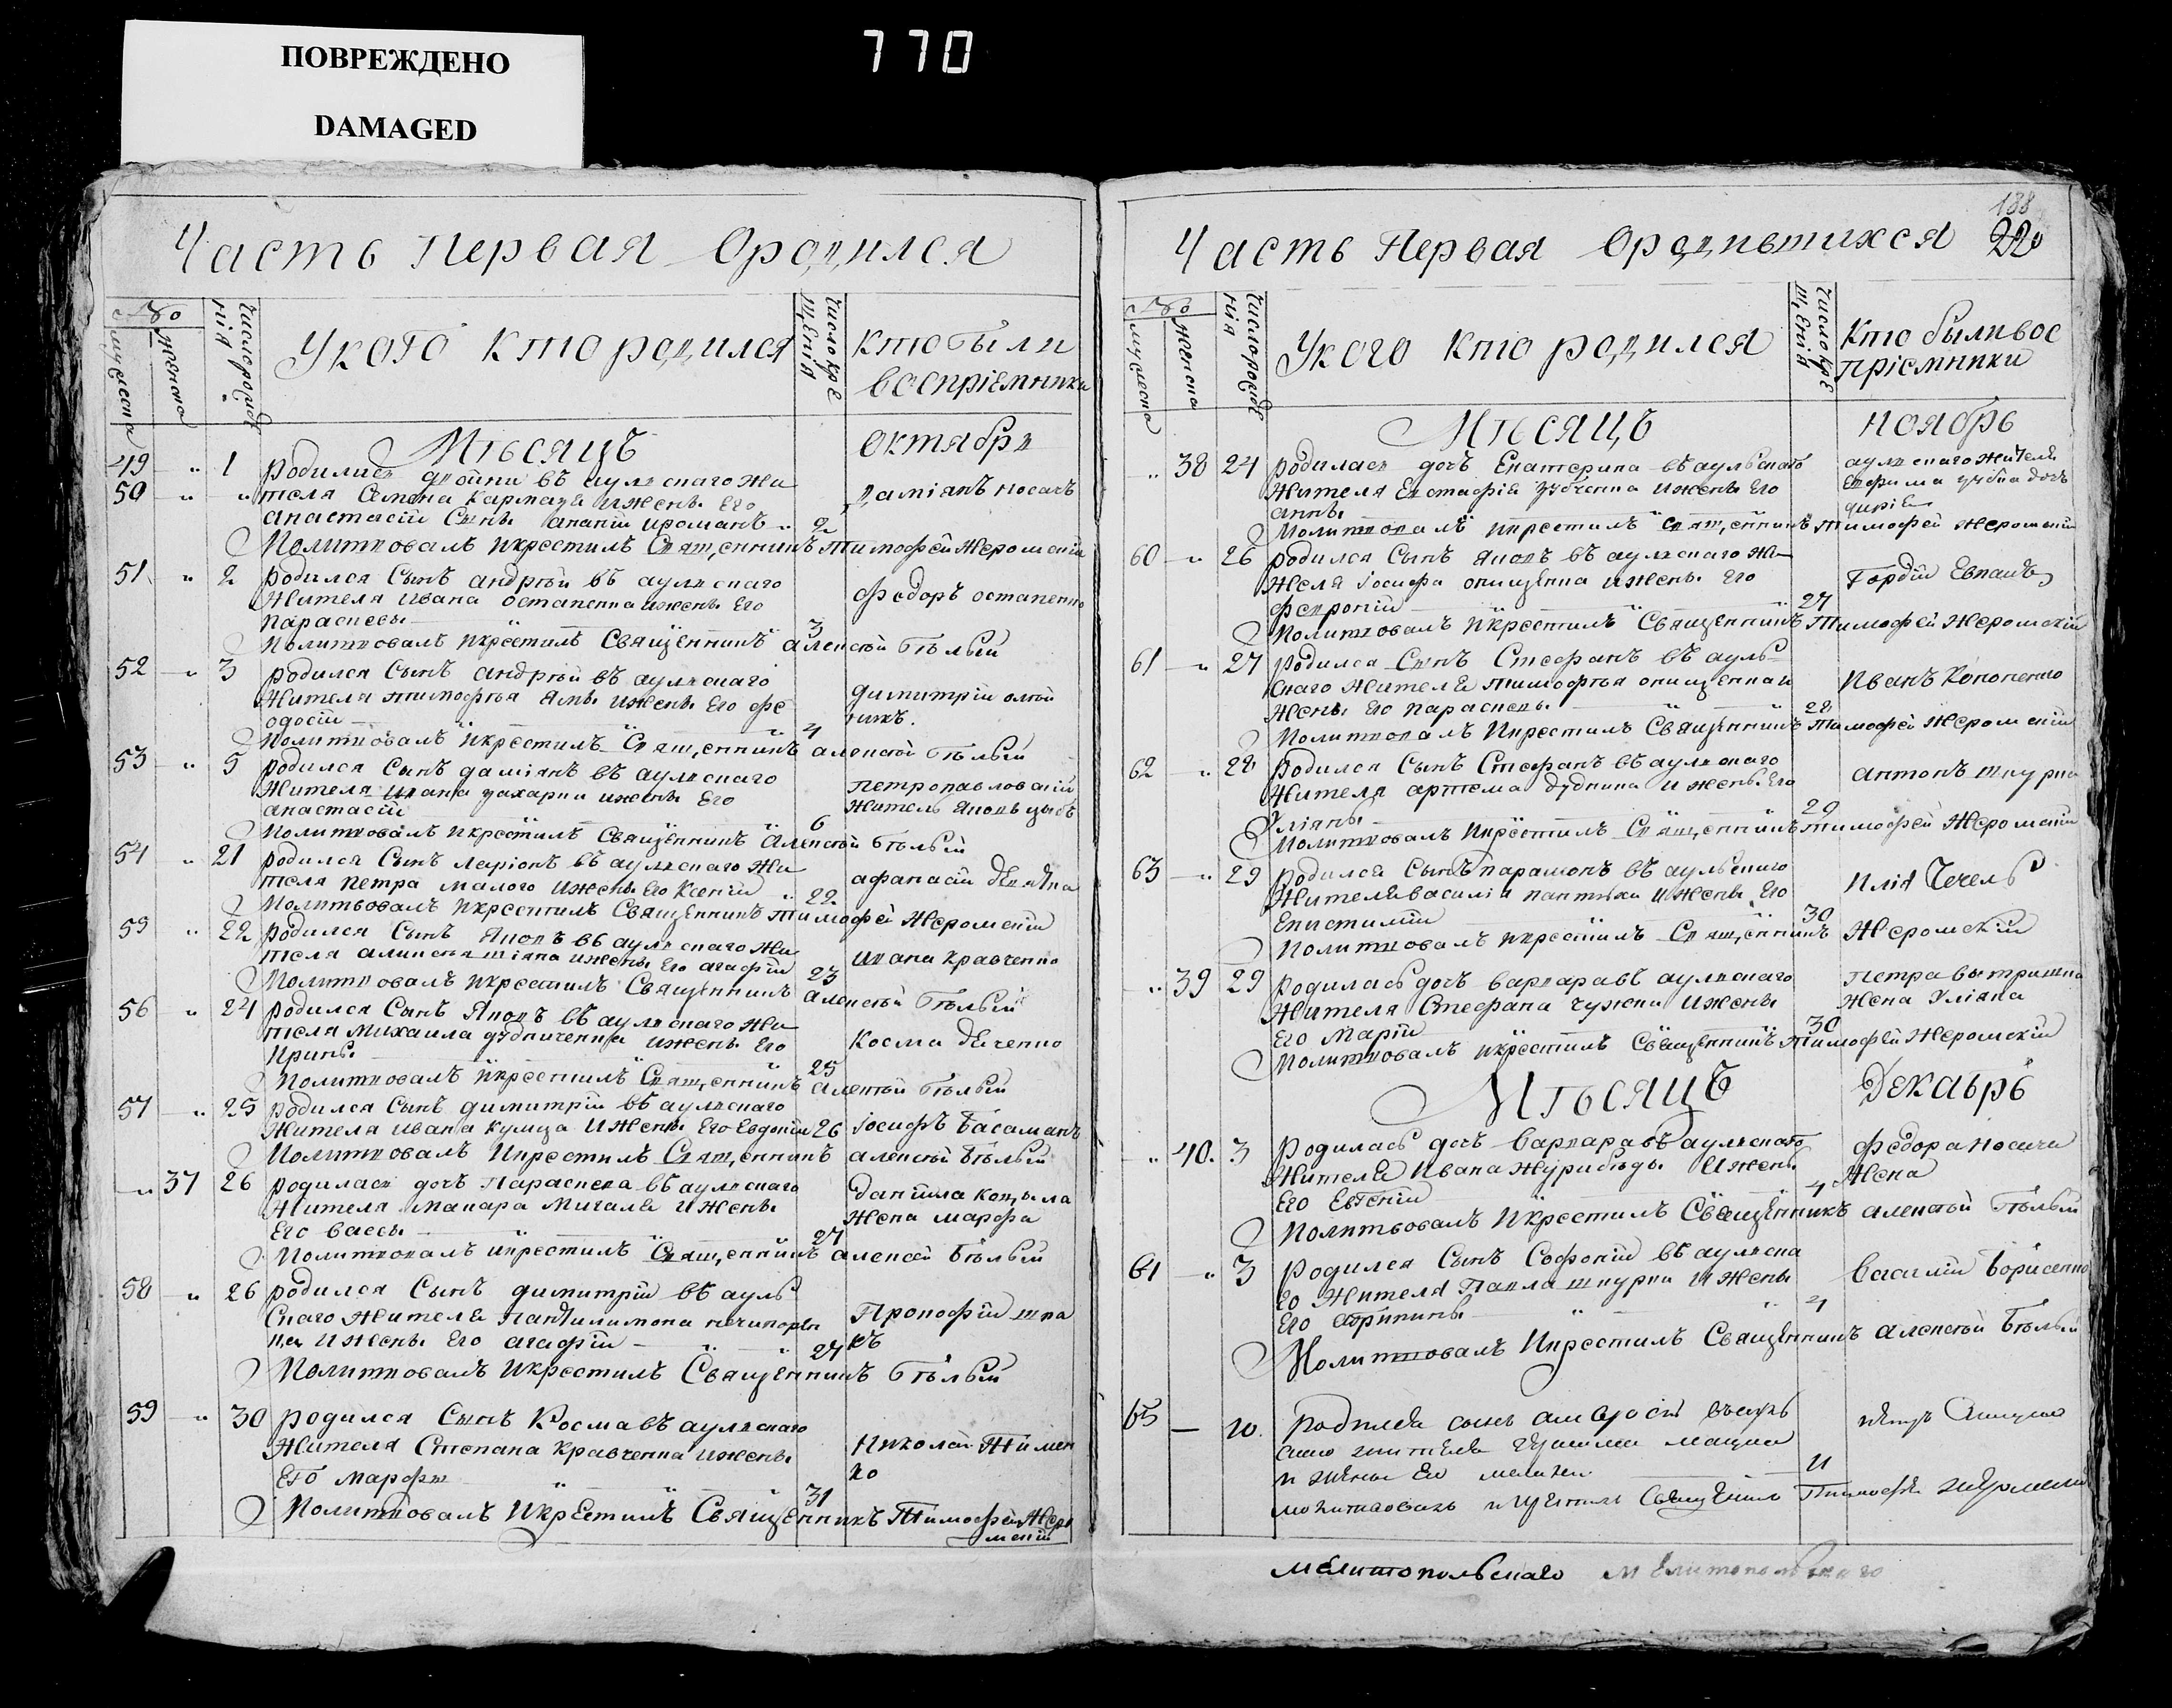 ПОВРЕЖДЕНО
DAMAGED
770
Часть Первая Ородился
№о
мужеска
женска
Число рожде
нія
Укого кто родился
Число кре
щенія
кто были
воспріемники
Мѣсяцъ октябрь
49 — „ 1 родились двойни въ аульскаго жи
50 „ „ теля Семена Кармаза ижены Его даміянъ носачъ
анастасіи Сынъ ананій ироманъ 2
Молитвовалъ икрестилъ Священникъ тимофей Жеромскій
51 „ 2 родился Сынъ андрѣй въ аульскаго
Жителя ивана остапенка ижены Его федоръ остапенко
параскевы — 3
Молитвовалъ икрестилъ Священникъ алексѣй Бѣлый
52 — „ 3 родился Сынъ андрѣй въ аульскаго
Жителя тимофѣя Ямы ижены Его фе димитрій олѣй
одосіи — никъ. 4
Молитвовалъ икрестилъ Священникъ алексѣй Бѣлый
53 „ 5 родился Сынъ даміянъ въ аульскаго
Жителя ивана захарки ижены Его петропавловскій
анастасіи житель Яковъ 6
Молитвовалъ икрестилъ Священникъ Алексѣй Бѣлый
54 „ 21 родился Сынъ ларіонъ въ аульскаго жи
теля петра малого ижены Его Ксеніи 22 афанасій
Молитвовалъ икрестилъ Священникъ тимофей Жеромскій
55 „ 22 родился Сынъ Яковъ въ аульскаго жи
теля ижены Его агафіи 23 ивана кравченко
Молитвовалъ икрестилъ Священникъ алексѣй Бѣлый
56 „ 24 родился Сынъ Яковъ въ аульскаго жи
теля михаила дудниченка ижены Его Косма деченко
Ирины 25
Молитвовалъ икрестилъ Священникъ алексѣй Бѣлый
57 — „ 25 родился Сынъ димитрій въ аульскаго
Жителя ивана кулиша ижены Его Евдокіи 26 іосифъ Басаманъ
Молитвовалъ икрестилъ Священникъ алексѣй Бѣлый
— „ 37 26 родилась дочь Параскева въ аульскаго
Жителя макара Мигаля ижены данііла
Его вассы — 27 жена марфа
Молитвовалъ икрестилъ Священникъ алексѣй Бѣлый
58 — „ 26 родился Сынъ димитрій въ ауль
скаго Жителя Пантилимона Прокофій шра
ка ижены Его агафіи — 27 къ
Молитвовалъ икрестилъ Священникъ Бѣлый
59 — „ 30 родился Сынъ Косма въ аульскаго
Жителя Степана кравченка ижены Николай Тимен
Его марфы — 31 ко
Молитвовалъ икрестилъ Священникъ Тимофей Жеро
мскій
188
220
Часть Первая Ородившихся
№о
мужеска
женска
Число рожде
нія
Укого кто родился
Число кре
щенія
Кто были вос
пріемники
Мѣсяцъ ноябрь
„ 38 24 родилась дочь Екатерина въ аульскаго аульскаго жителя
Жителя Евстафія зубченка ижены Его Ефрема зубка дочь
анны
Молитвовалъ икрестилъ Священникъ тимофей Жеромскій
60 — „ 26 родился Сынъ Яковъ въ аульскаго жи
теля іосифа онищенка ижены Его Гордій Евпакъ
февроніи 27
Молитвовалъ икрестилъ Священникъ Тимофей Жеромскій
61 — „ 27 родился Сынъ Стефанъ въ ауль
скаго Жителя тимофѣя онищенка и Иванъ Кононенко
жены Его параскевы 28
Молитвовалъ икрестилъ Священникъ Тимофей Жеромскій
62 „ 28 родился Сынъ Стефанъ въ аульскаго
Жителя артема дудника ижены Его антонъ шкурка
Уліяны 29
Молитвовалъ икрестилъ Священникъ тимофей Жеромскій
63 — „ 29 родился Сынъ парамонъ въ аульскаго
Жителя василія ижены Его Илія Чечель
Епистиміи 30
Молитвовалъ икрестилъ Священникъ Жеромскій
— „ 39 29 родилась дочь варвара въ аульскаго петра
Жителя Стефана чужки ижены жена Уліяна
Его Маріи 30
Молитвовалъ икрестилъ Священникъ Тимофей Жеромскій
Мѣсяцъ Декабрь
— „ 40. 3 Родилась дочь Варвара въ аульскаго федора носача
Жителя Ивана Журибѣды ижены жена
Его Евгеніи 4
Молитвовалъ икрестилъ Священникъ алексѣй Бѣлый
61 — „ 3 Родился Сынъ Софоній въ аульска
го Жителя Павла шкурки ижены Василій Борисенко
Его 4
Молитвовалъ икрестилъ Священникъ алексѣй Бѣлый
65 — 10. Родился сынъ амвросій въ ауль петръ
скаго жителя
и жены Его 11
молитвовалъ и крестилъ Священникъ Тимофей Жеромскій
мелитопольскаго мелитопольскаго